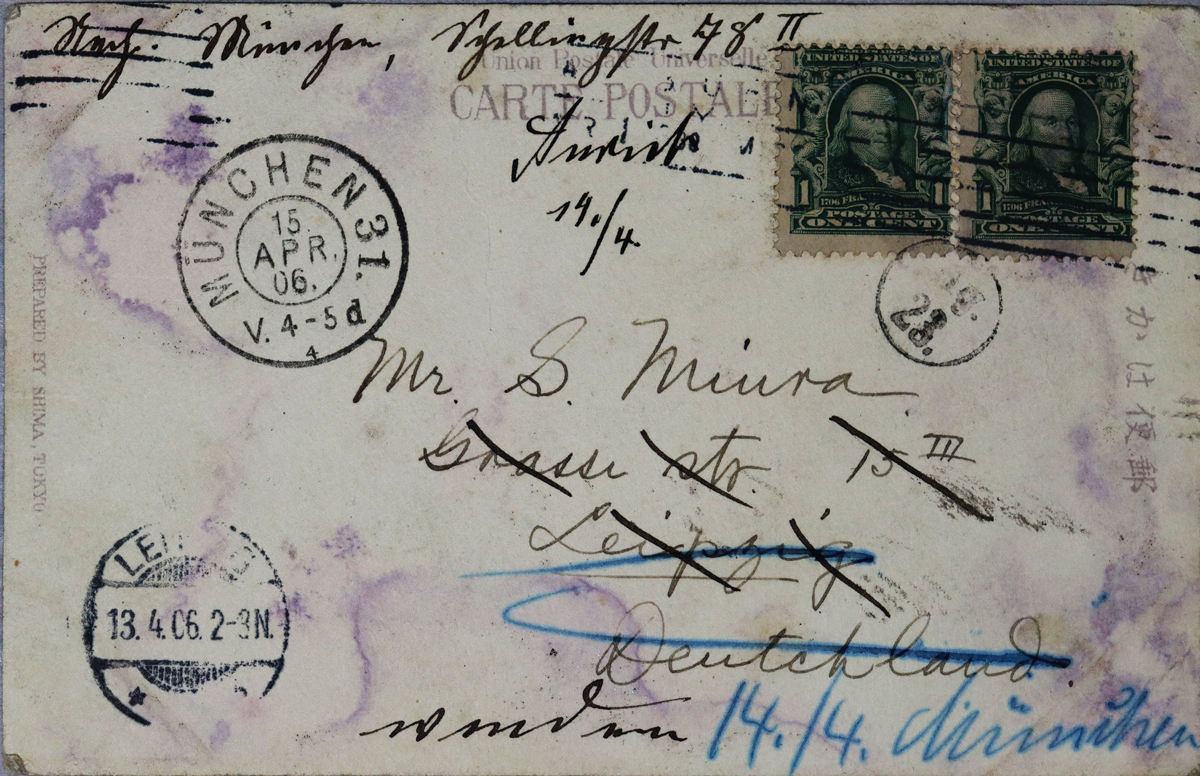 Nach. München, Schellingstr 78 II
Union Postale Universelle
CARTE POSTALE
Zurück
14./4.
UNITED STATES OF
AMERICA
1 1
POSTAGE
ONE CENT
UNITED STATES OF
AMERICA
1 1
POSTAGE
ONE CENT
MÜNCHEN 31.
15
APR.
06.
V. 4-5 d
4
28.
Mr S. Miura
Grasse str. 15 III
Leipzig
Deutchland.
wenden
14./4. München
13.4.06. 2-3N.
PREPARED BY SHIMA TOKYO
きかは便郵